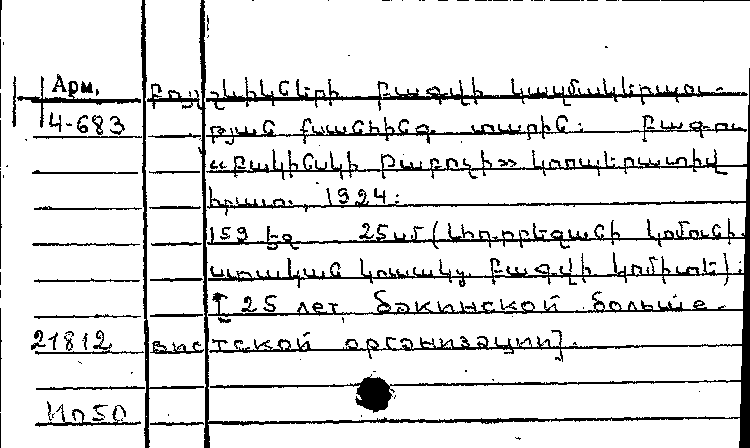 Арм,
4-683
Բոլշևիկների Բագվի կազմակերպու-
թյան քսանհինգ տարին: Բագու
«Բակինսկի Ռաբոչի» կոոպերատիվ
հրատ., 1924:
159 էջ 25սմ (Ադրբեջանի կոմունի.
ստական կուսակց. Բագվի կոմիտե):
[25 лет бакинской больше-
21812 вистской организации].
Ип50